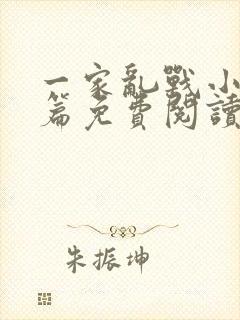 一家亂戰小
篇免費閱讀
朱振坤